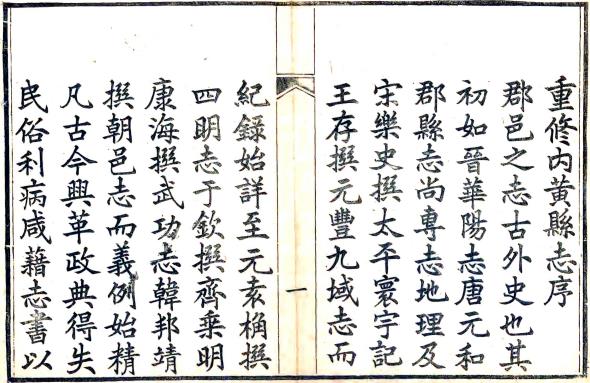 重修内黃縣志序
郡邑之志古外史也其
初如晉華陽志唐元和
郡縣志尚專志地理及
宋樂史撰太平寰宇記
王存撰元豐九域志而
一
紀錄始詳至元袁桷撰
四明志于欽撰齊乗明
康海撰武功志韓邦靖
撰朝邑志而義例始精
凡古今興革政典得失
民俗利病咸藉志書以